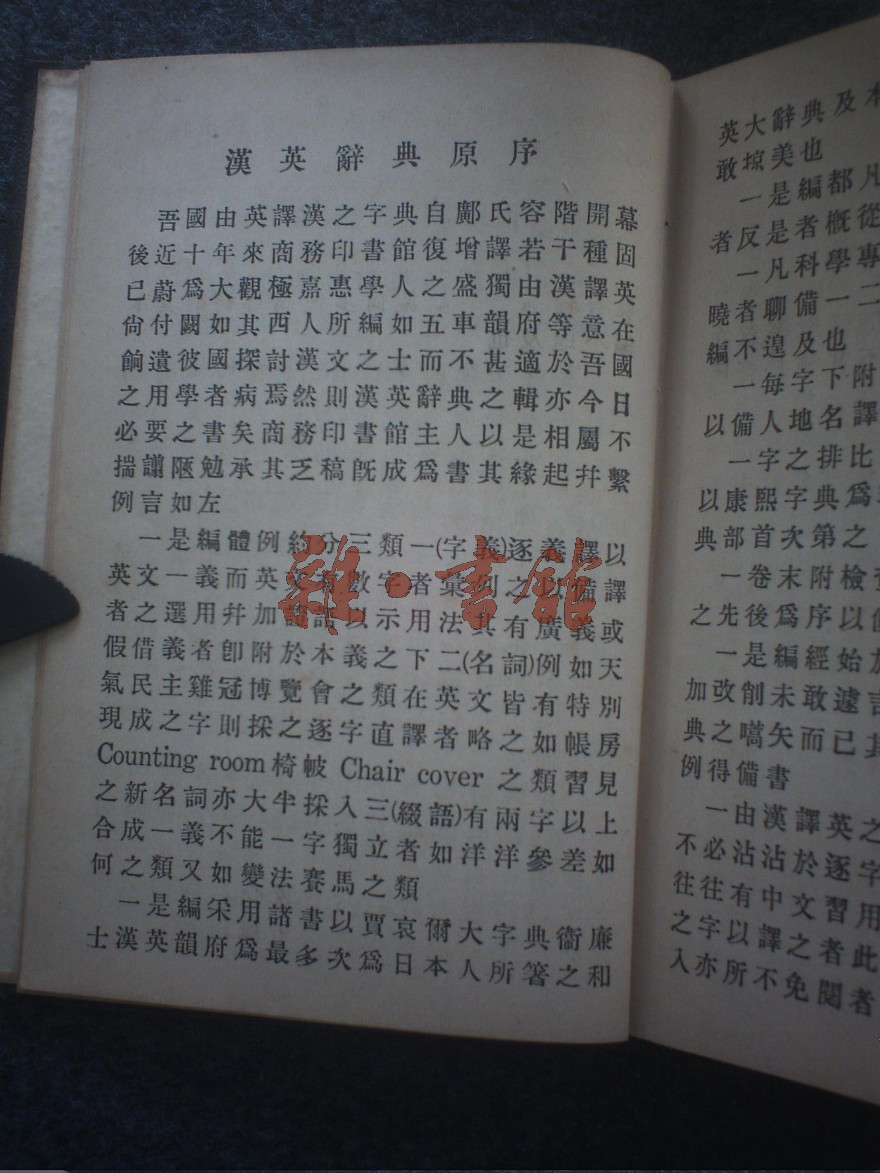 漢英辭典原序
吾國由英譯漢之字典自鄺氏容階開幕
後近十年來商務印書館復增譯若干種固
已蔚爲大觀極嘉惠學人之盛獨由漢譯英
尙付闕如其西人所編如五車韻府等意在
餉遺彼國探討漢文之士而不甚適於吾國
之用學者病焉然則漢英辭典之輯亦今日
必要之書矣商務印書館主人以是相屬不
揣譾陋勉承其乏稿旣成爲書其緣起幷繫
例言如左
一是編體例約分三類一(字義)逐義繹以
英文一義而英文有數字者彙列之以備譯
者之選用幷加諸語以示用法其有廣義或
假借義者卽附於本義之下二(名詞)例如天
氣民主雞冠博覽會之類在英文皆有特別
現成之字則採之逐字直譯者略之如帳房
Counting room椅帔 Chair cover 之類習見
之新名詞亦大半採入三(綴語)有兩字以上
合成一義不能一字獨立者如洋洋參差如
何之類又如變法賽馬之類
一是編采用諸書以賈哀爾大字典衞廉
士漢英韻府爲最多次爲日本人所箸之和
英大辭典及本
敢掠美也
一是編都凡
者反是者槪從
一凡科學專
曉者聊備一二
編不遑及也
一每字下附
以備人地名譯
一字之排比
以康熙字典爲
典部首次第之
一卷末附檢
之先後爲序以
一是編經始於
加改削未敢遽言
典之嚆矢而已其
例得備書
一由漢譯英之
不必沾沾於逐字
往往有中文習用
之字以譯之者此
入亦所不免閱者
雜·書館